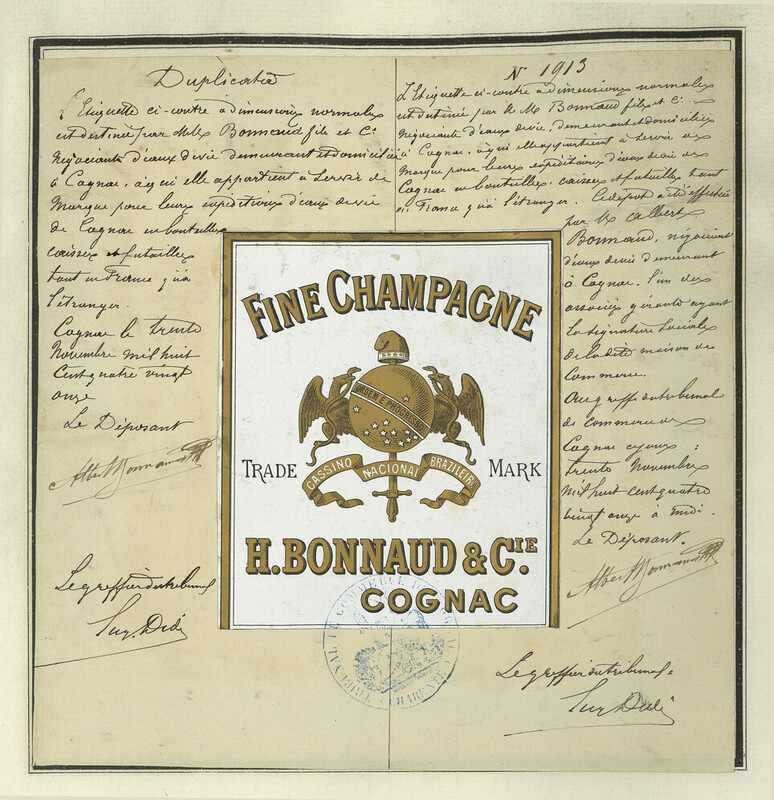 Duplicata
L'Etiquette ci-contre à dimensions normales
est destinée par MM. Bonnaud fils et Cie
Négociants d'eaux de vie demeurant et domiciliés
à Cognac, à qui elle appartient à servir de
Marque pour leurs expéditions d'eaux de vie
de Cognac en bouteilles
caisses et futailles
tant en France qu'à
l'étranger.
Cognac le trente
Novembre mil huit
Cent quatre vingt
onze
Le Déposant
Albert Bonnaud
Le greffier du tribunal
N 1913
L'Etiquette ci-contre à dimensions normales
est destinée par MM Bonnaud fils et Cie
Négociants d'eaux de vie, demeurant et domiciliés
à Cognac, à qui elle appartient à servir de
Marque pour leurs expéditions d'eaux de vie de
Cognac en bouteilles, caisses et futailles tant
en France qu'à l'étranger. Ce dépôt a été effectué
par Mr Albert
Bonnaud, négociant
d'eaux de vie demeurant
à Cognac, l'un des
associés gérants ayant
la signature sociale
de la dite maison de
Commerce.
Au greffe du tribunal
de commerce de
Cognac ce jour :
trente Novembre
mil huit cent quatre
vingt onze à midi.
Le Déposant.
Albert Bonnaud
Le greffier du tribunal
FINE CHAMPAGNE
ORDEM E PROGRESSO
TRADE MARK
CASSINO NACIONAL BRAZILEIRO
H. BONNAUD & CIE.
COGNAC
TRIBUNAL DE COMMERCE DE COGNAC